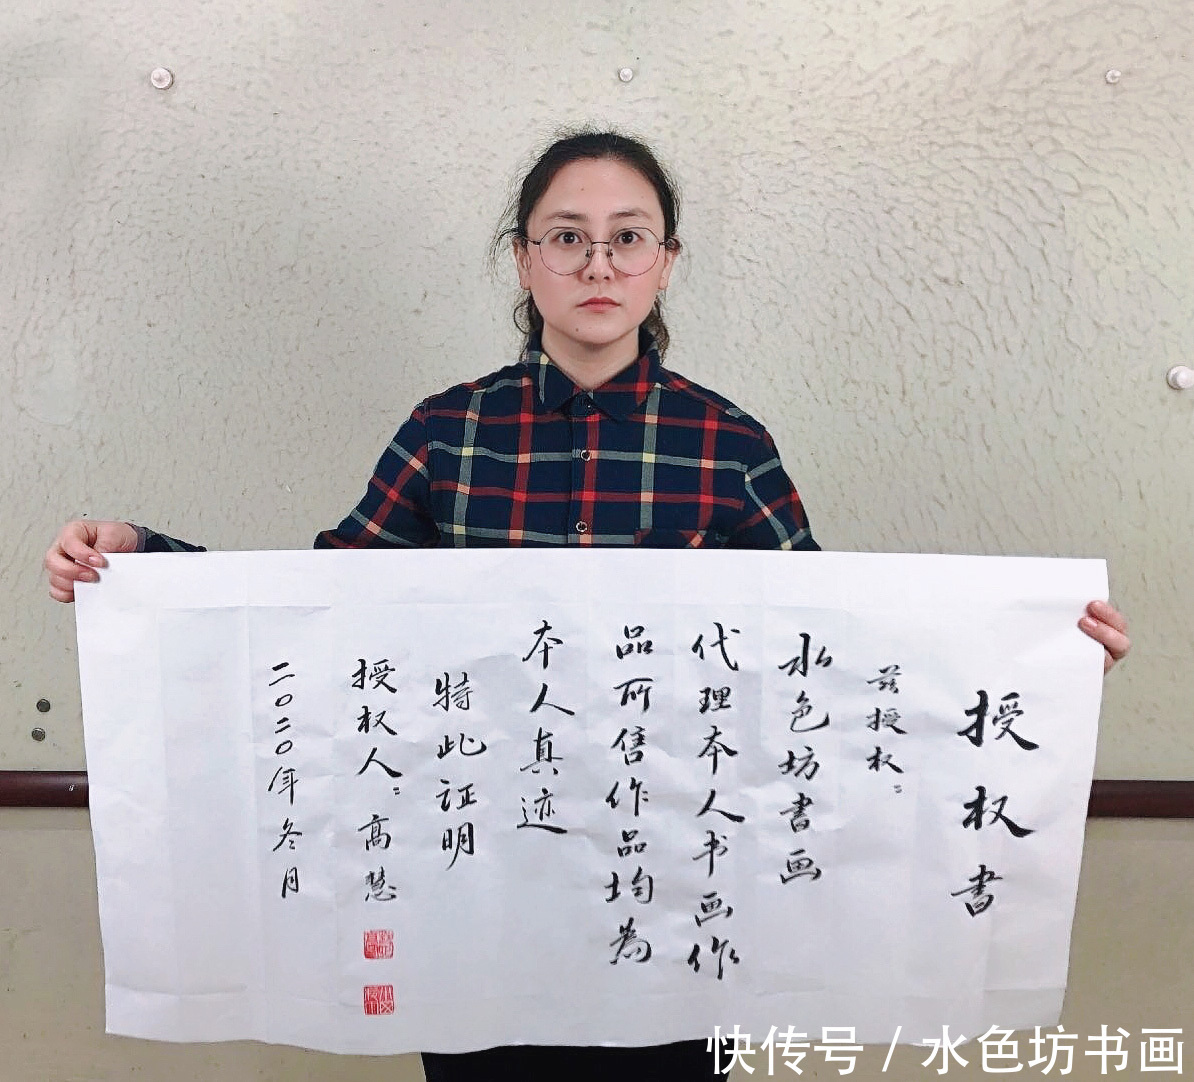 授权书
兹授权：
水色坊書画
代理本人书画作
品所售作品均为
本人真迹
特此证明
授权人：高慧
二〇二〇年冬月
快传号 / 水色坊书画